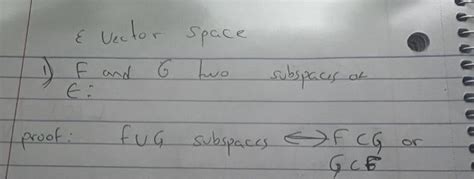 ε vector space
1) F and G two subspaces of
E:
proof: F∪G subspaces ⟷ F ⊂ G or
G ⊂ F